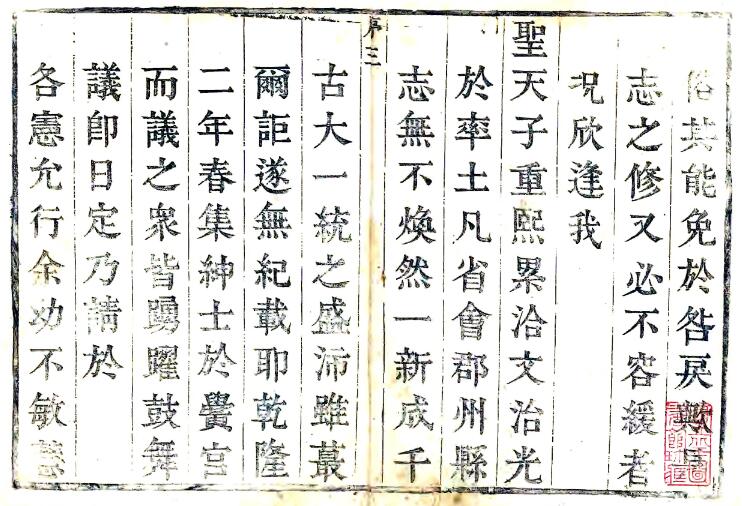 俗其能免於咎戾歟
志之修又必不容緩者
況欣逢我
聖天子重熙累洽文治光
於率土凡省會郡州縣
志無不煥然一新成千
序三
古大一統之盛沛雖蕞
爾詎遂無紀載耶乾隆
二年春集紳士於黌宮
而議之衆皆踴躍鼓舞
議卽日定乃請於
各憲允行余幼不敏